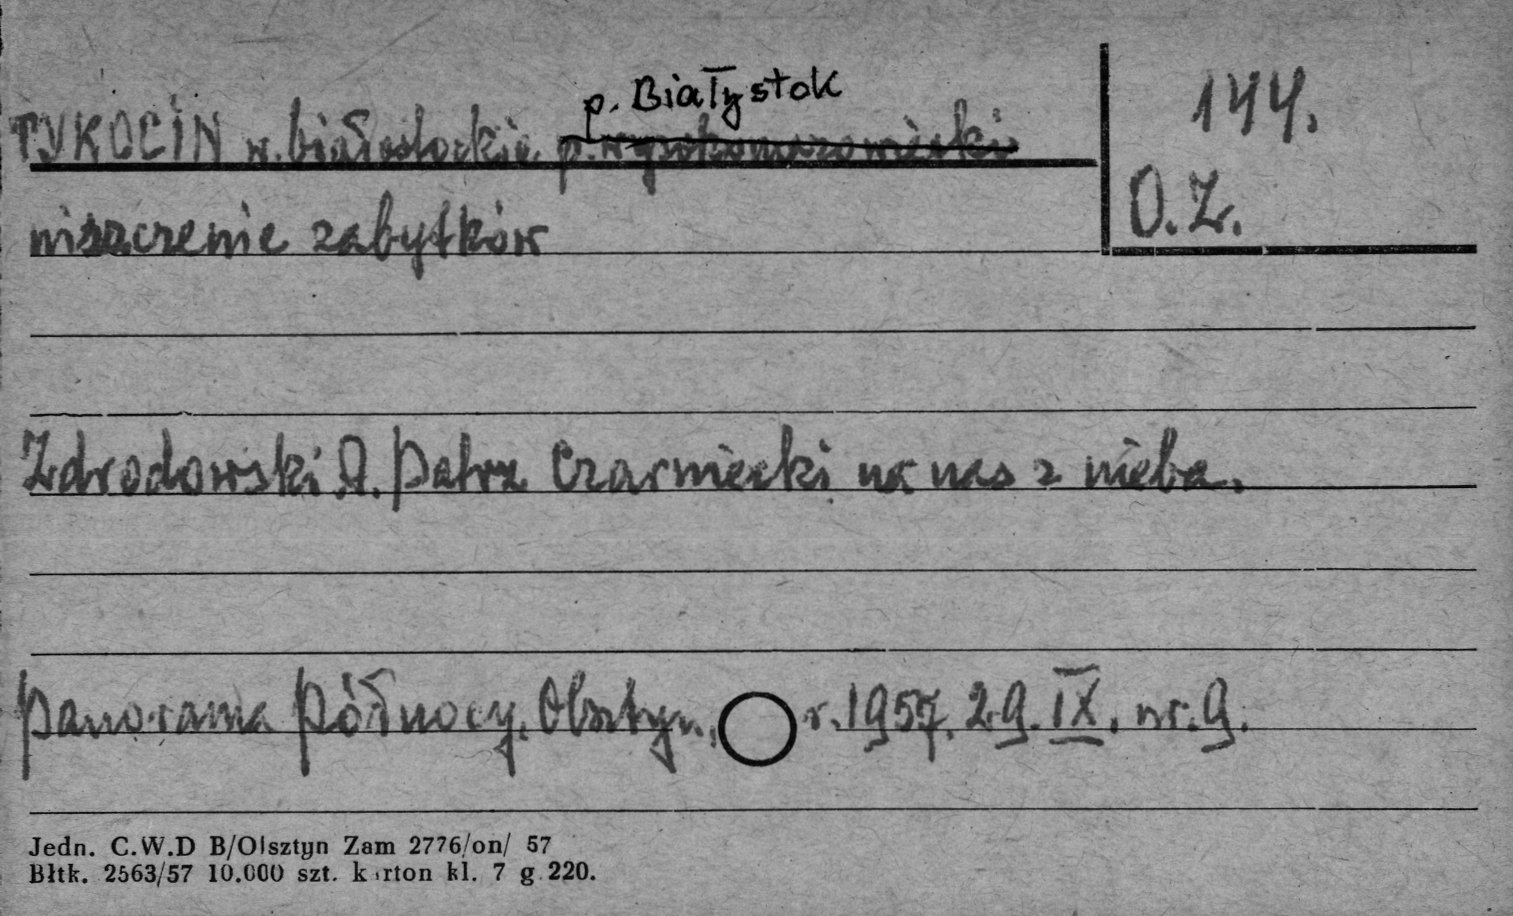 p. Białystok
TYKOCIN w. białostockie p. wysokomazowiecki
144.
O.Z.
niszczenie zabytków
Zdrodowski A. Patrz Czarniecki na nas z nieba.
Panorama Północy. Olsztyn, r. 1957. 29. IX. nr. 9.
Jedn. C.W.D B/Olsztyn Zam 2776/on/ 57
Błtk. 2563/57 10.000 szt. karton kl. 7 g 220.